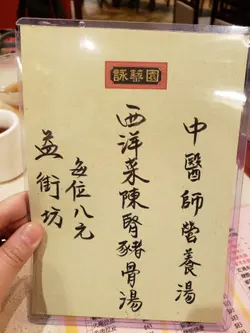 詠藜園
中醫師營養湯
西洋菜陳腎豬骨湯
每位八元
益街坊